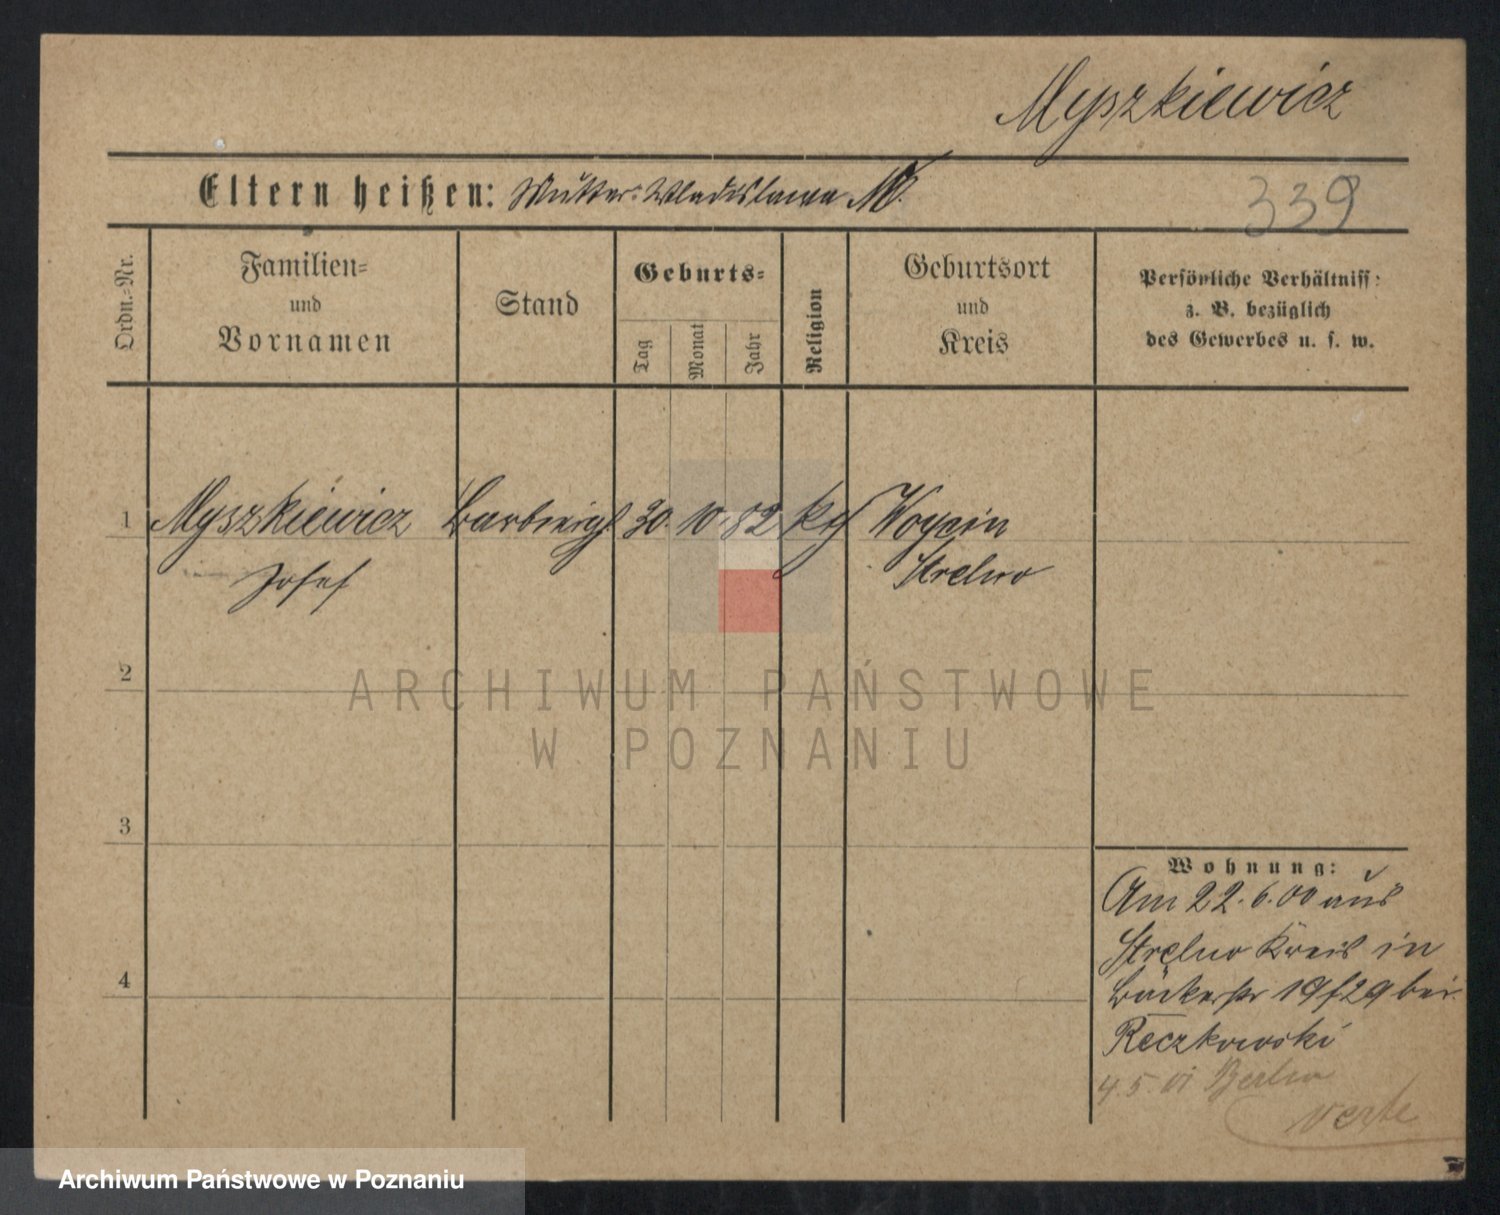 Myszkiewicz
Eltern heißen: Mutter: Wladislawa M.
339
Ordn.-Nr.
Familien-
und
Vornamen
Stand
Geburts-
Tag
Monat
Jahr
Religion
Geburtsort
und
Kreis
Persönliche Verhältniss:
z. B. bezüglich
des Gewerbes u. s. w.
1 Myszkiewicz 30. 10. 82 kth Woycin
Josef Strelno
2
ARCHIWUM PAŃSTWOWE
W POZNANIU
3
4
Wohnung:
Am 22. 6. 00 aus
Strelno Kreis in
Bäckerstr 19/29 bei
Reczkowski
4. 5. 01 Berlin
verte
Archiwum Państwowe w Poznaniu